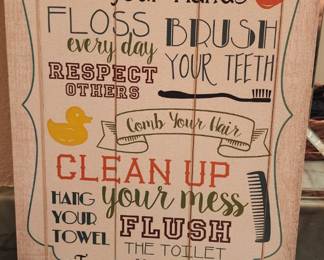 your Hands
FLOSS
every day
BRUSH
YOUR TEETH
RESPECT
OTHERS
Comb Your Hair
CLEAN UP
your mess
HANG
YOUR
TOWEL
FLUSH
THE TOILET